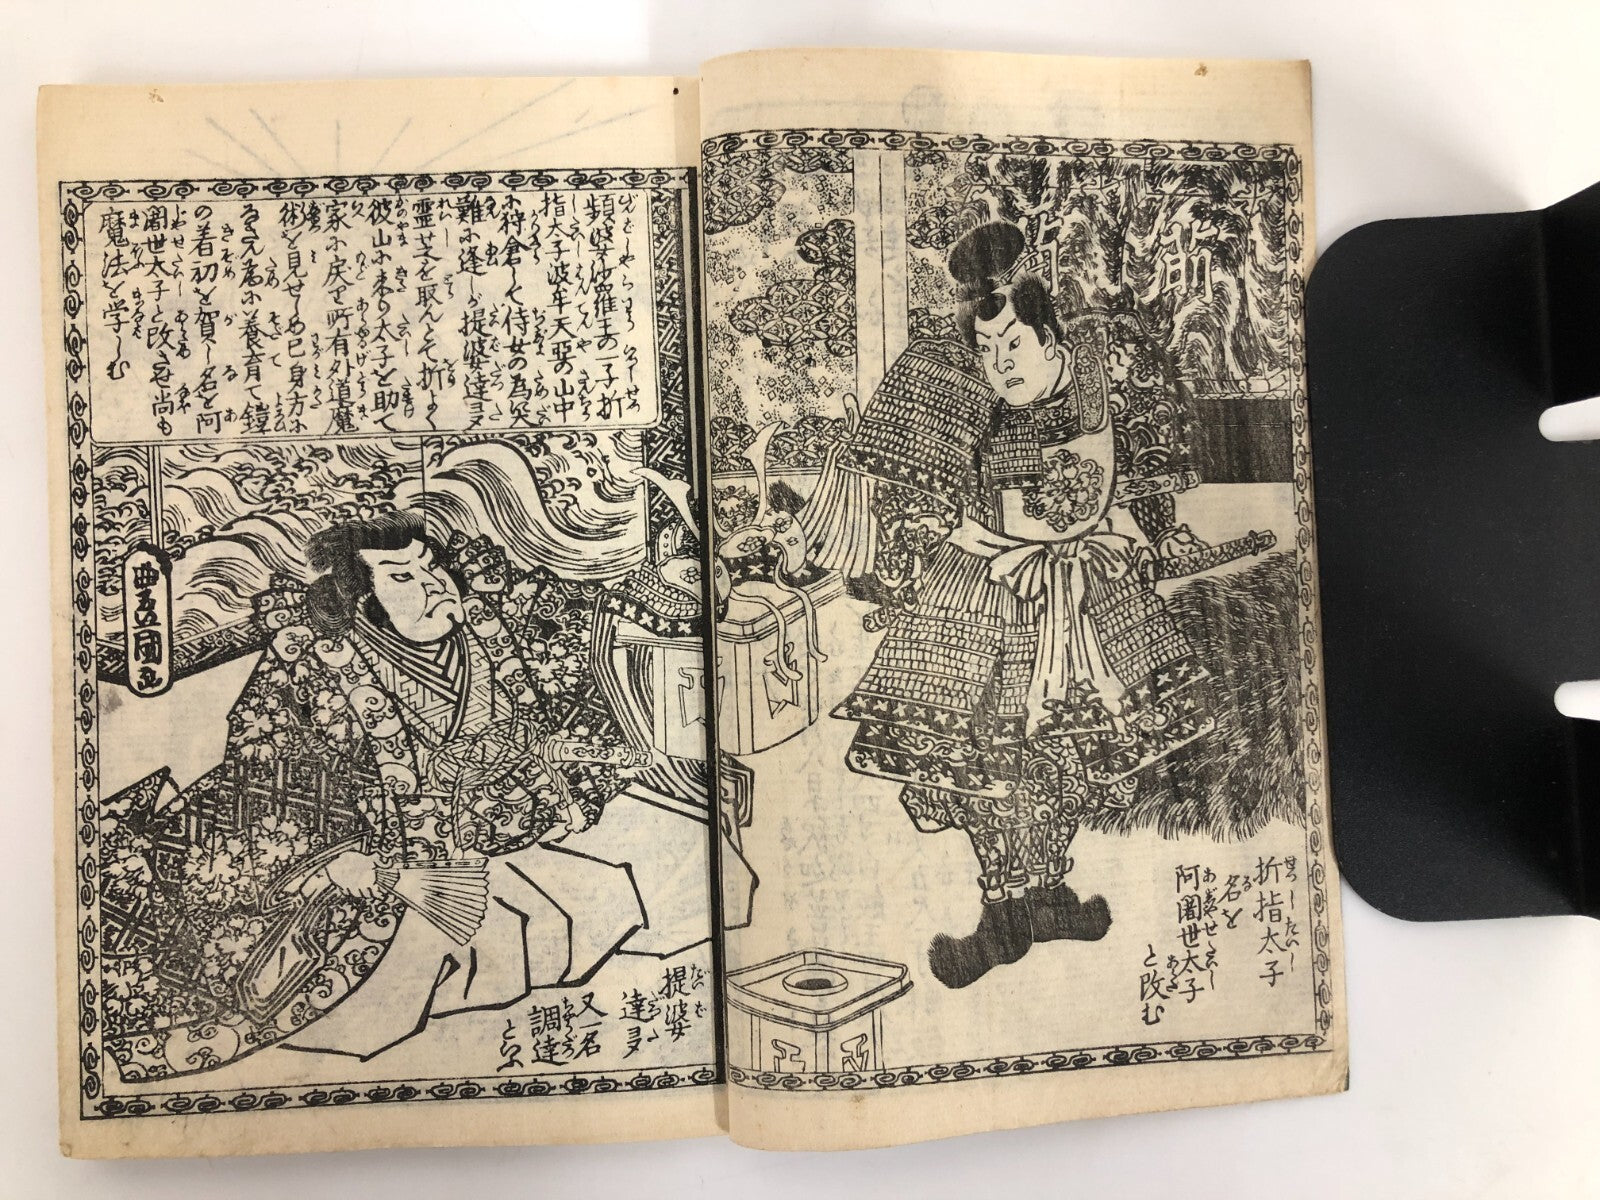 折指太子
名を
阿闍世太子
と改む
頻婆沙羅王の一子折
指太子波牟天悪の山中
に狩倉して侍女の為に
難に逢しが提婆達多
霊芝を取んとて折よく
彼山に来り太子を助て
家に戻せ所有外道魔
術を見せしめ己身方に
なさん為に養育て鎧
の着初を賀し名を阿
闍世太子と改させ尚も
魔法を学しむ
豊国画
提婆
達多
又一名
調達
といふ